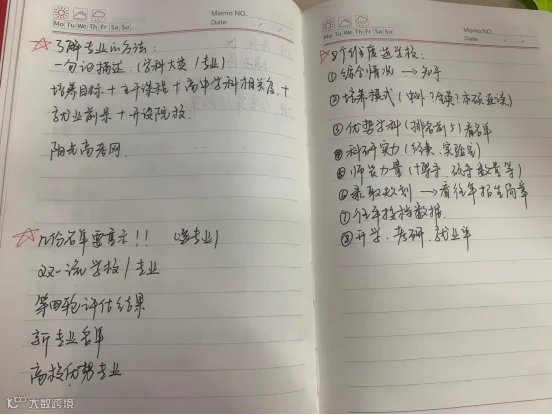 Memo NO.
Mo Tu We Th Fr Sa Su
Date
☆了解专业的方法:
一句话描述:(学科大类/专业)
培养目标+主干课程+高中学科相关度+
就业前景+开设院校.
阳光高考网.
☆几份名单要看示!!(选专业)
双一流学校/专业
第四轮评估结果
新专业名单
高校优势专业
大数跨境
Memo NO.
Mo Tu We Th Fr Sa Su
Date
8个维度选学校:
①综合情况→知乎
②培养模式(中外?合作?本硕连读)
③优势学科(排名前5)看名单
④科研实力(经费.实验室)
⑤师资力量(博导、硕导数量等)
⑥录取规划→看往年招生简章
⑦往年投档数据.
⑧升学.考研.就业率